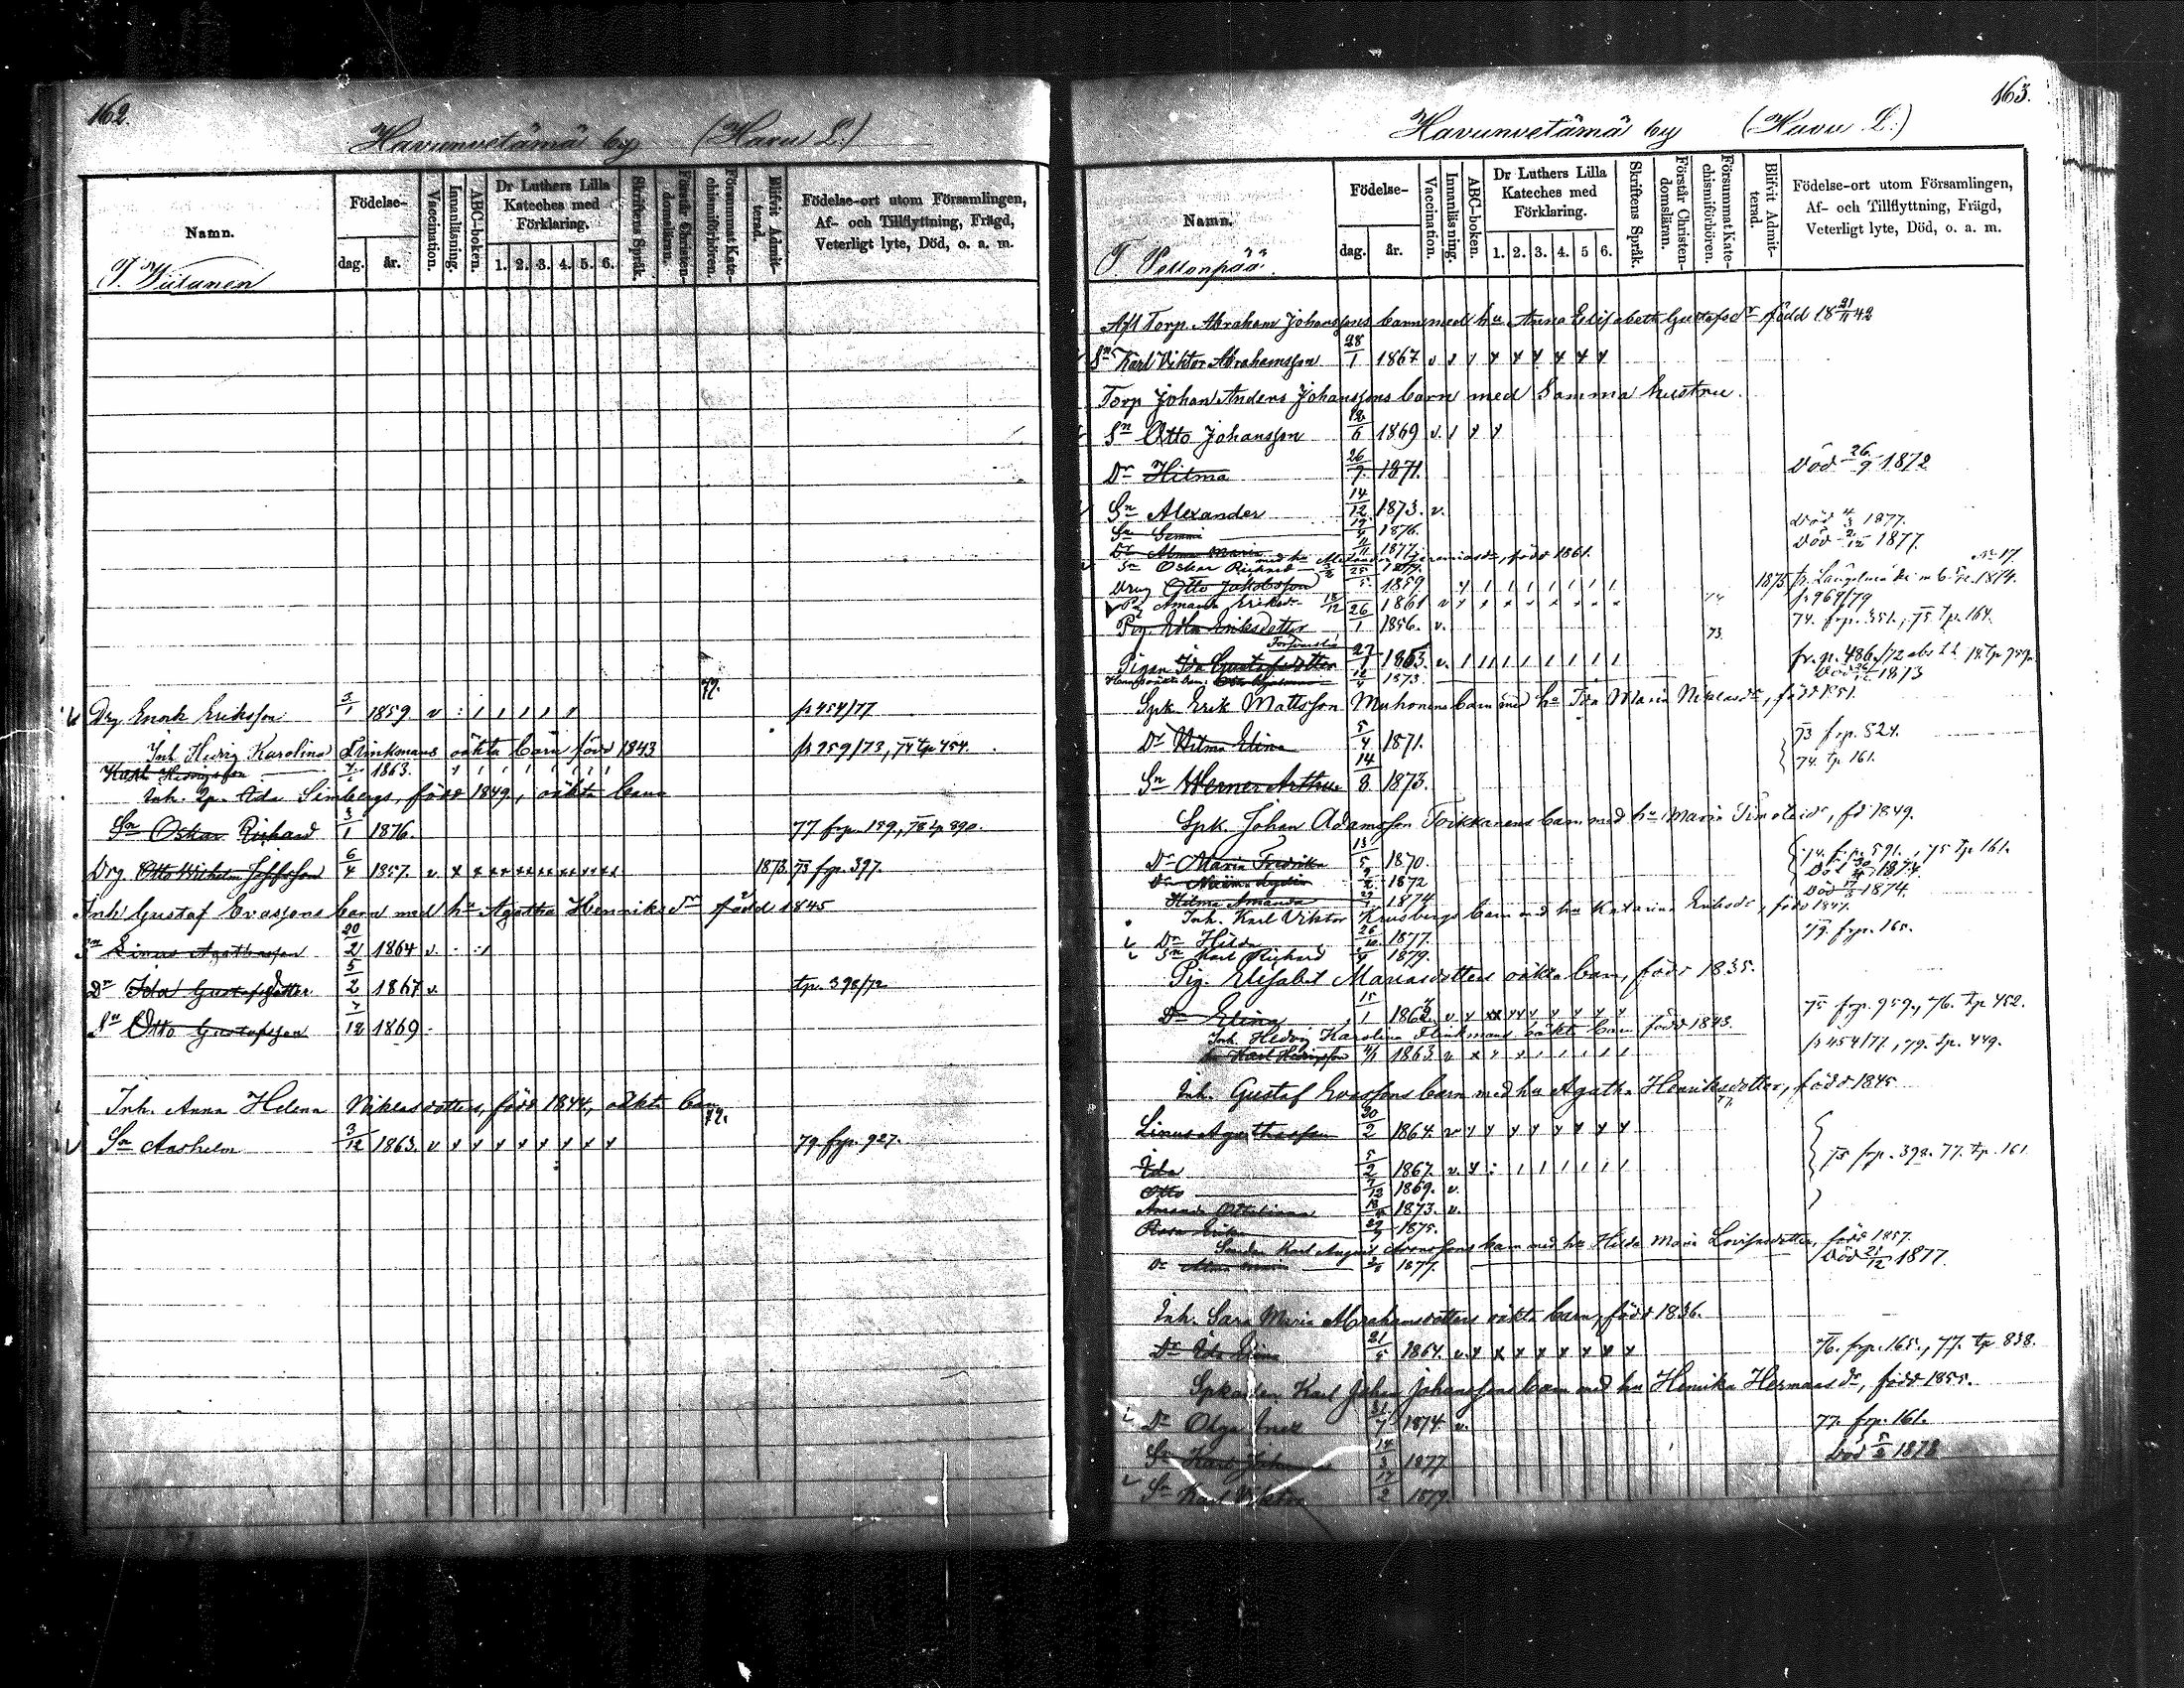 162.
Havunvetämä by (Havu L.)
Namn.
Födelse-
dag.
år.
Vaccination.
Innanläsning.
ABC-boken.
Dr Luthers Lilla Kateches med Förklaring.
1. 2. 3. 4. 5. 6.
Skriftens Språk.
Förstår Christendomsläran.
Försummat Katechismiförhören.
Blifvit Admitterad.
Födelse-ort utom Församlingen, Af- och Tillflyttning, Frägd, Veterligt lyte, Död, o. a. m.
T. Wiitanen
Drg Enok Eriksson 3/1 1859 v p 454/77
Inh. Hedvig Karolina Flinkmans oäkta barn född 1843 p 259/73, 74 tp 454.
Karl Hedvigsson 1863.
Inh. Ida Simbergs, född 1849, oäkta barn
Sn Oskar Richard 3/1 1876. 77 frp. 159, 78 tp 890.
Drg Otto Wilhelm 6/4 1857. v 1873. 73 frp. 397.
Inh Gustaf Evassons barn med hu Agatha Henriksdr född 1845
Sn Linus Agathasson 20/2 1864 v.
Dr Ida Gustafsdotter 5/2 1867 v. tp. 398/72
Sn Otto Gustafsson 7/12 1869
Inh. Anna Helena Niklasdotters, född 1844, oäkta barn
72.
Sn Anshelm 3/12 1863. v 79 frp. 927.
163.
Havunvetämä by (Havu L.)
Namn.
Födelse-
dag.
år.
Vaccination.
Innanläsning.
ABC-boken.
Dr Luthers Lilla Kateches med Förklaring.
1. 2. 3. 4. 5 6.
Skriftens Språk.
Förstår Christendomsläran.
Försummat Katechismiförhören.
Blifvit Admitterad.
Födelse-ort utom Församlingen, Af- och Tillflyttning, Frägd, Veterligt lyte, Död, o. a. m.
T. Peltonpää
Afl Torp. Abraham Johanssons barn med hu Anna Elisabeth Gustafsdr född 18 21/11 42
Sn Karl Viktor Abrahamsson 28/1 1867 v
Torp Johan Anders Johanssons barn med Samma hustru.
Sn Otto Johansson 1869 v.
Dr Hilma 26/9 1871. Död 26/9 1872
Sn Alexander 14/12 1873. v.
Sn 1876. Död 1877.
Dr Alma Maria 11/11 1877. Död 1877.
Sn Oskar Richard född 1861.
Drng Otto Jakobsson 1859 1875 fr. Längelmäki
Pg Amanda Eriksdr 18/12 1861 v p 969/79
Pig. Eriksdotter 26/1 1856. v. 73. 74. frp. 351., 75 tp. 164.
Pigan Ida Gustafsdotter 27/1 1853. v. fr. p. 486./72
12/4 1873. 1873
Spk. Erik Mattsson Muhonens barn med hu Ida Maria Niklasdr, född 1851.
Dr Hilma Elina 5/4 1871. 73 frp. 524.
74. tp. 161.
Sn Werner Arthur 14/8 1873.
Spk. Johan Adamsson Toikkanens barn med hu Maria Timoteidr, fd 1849.
Dr Maria Fredrika 13/5 1870. 74. frp. 591., 75 tp. 161.
Dr Naima Lydia 9/2 1872
Hilma Amanda 1874 Död 1874.
Inh. Karl Viktor Krusbergs barn med hu Katarina Eriksdr, född 1847.
Dr Hilda 26/10 1877. 79. frp. 165.
Sn Karl Richard 1879.
Pig. Elisabet Mariasdotters oäkta barn, född 1835.
Dr Elina 15/1 1862. v 75 frp. 959., 76. tp 452.
Inh. Hedvig Karolina Flinkmans oäkta barn född 1843.
Sn Karl Hedvigsson 1863. v p 454/77., 79. tp. 449.
Inh. Gustaf Evassons barn med hu Agatha Henriksdotter, född 1845
Linus Agathasson 20/2 1864. v
Ida 5/2 1867. v. 75 frp. 398. 77. tp. 161
Otto 7/12 1869. v.
Amanda Ottiliana 1873. v.
Rosa 1875.
Karl August barn med hu Hilda Maria Lovisasdotter, född 1857.
Dr Alma 1877. Död 21/12 1877.
Inh. Sara Maria Abrahamsdotters oäkta barn, född 1836.
Dr Ida 21/5 1864. v. 76. frp. 165., 77. tp 838.
Spkarlen Karl Johan Johanssons barn med hu Henrika Hermansdr, född 1855.
Dr Olga 31/7 1874 v. 77. frp. 161.
Sn Karl Johannes 14/3 1877 Död 5/2 1878
Sn Karl Viktor 17/2 1879.